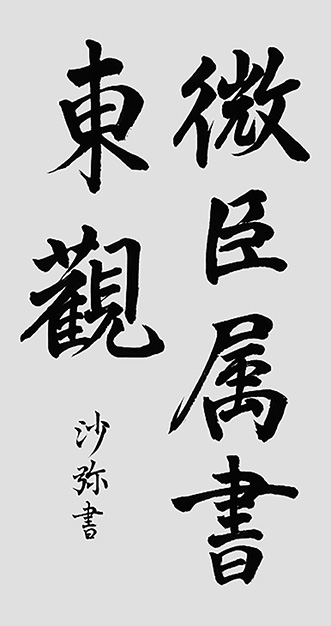 微臣属書
東觀
沙弥書